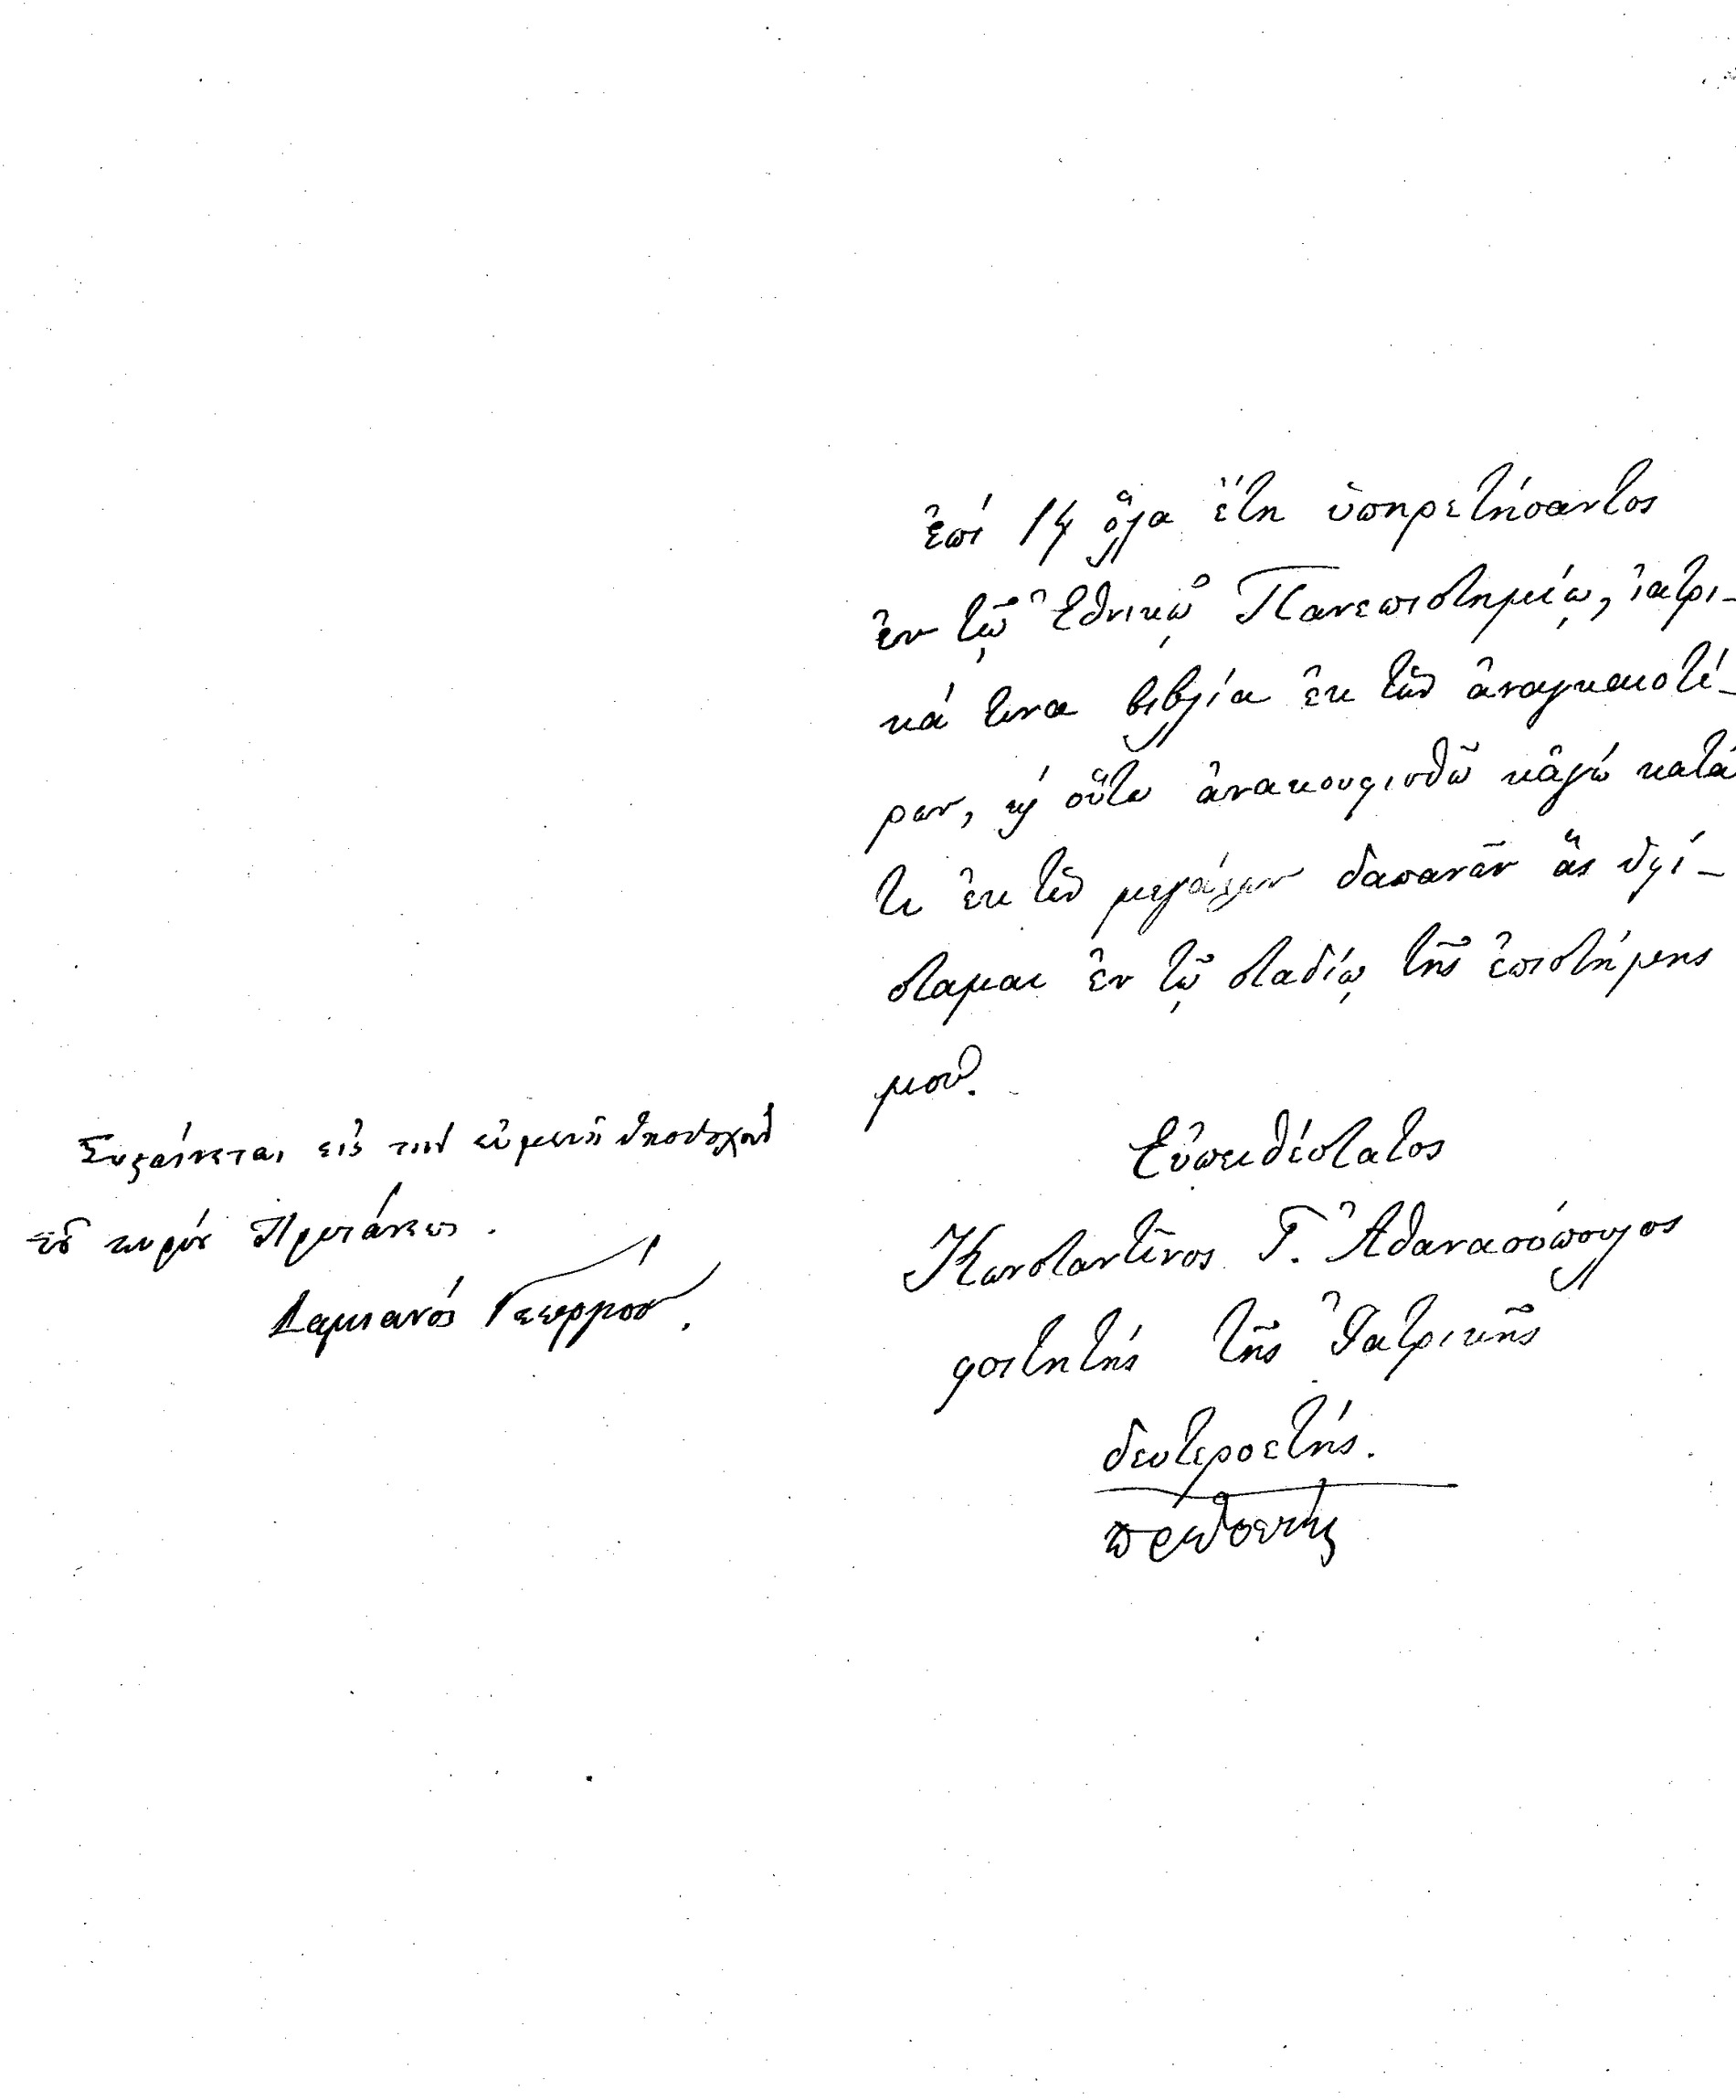 ἐπὶ 14 ὅλα ἔτη ὑπηρετήσαντος
ἐν τῷ Ἐθνικῷ Πανεπιστημίῳ, ἰατρι-
κά τινα βιβλία ἐκ τῶν ἀναγκαιοτέ-
ρων, ἵν' οὕτω ἀνακουφισθῶ κἀγὼ κατά
τι ἐκ τῶν μεγάλων δαπανῶν ἃς ὑφί-
σταμαι ἐν τῷ σταδίῳ τῆς ἐπιστήμης
μου.
Εὐπειθέστατος
Κωνσταντῖνος Γ. Ἀθανασόπουλος
φοιτητής τῆς Ἰατρικῆς
δευτεροετής.
πρωτοετής
εἰς τὴν εὐμενῆ ὑποδοχὴν
τοῦ κυρίου Πρυτάνεως.
Δαμιανός Γεωργίου.